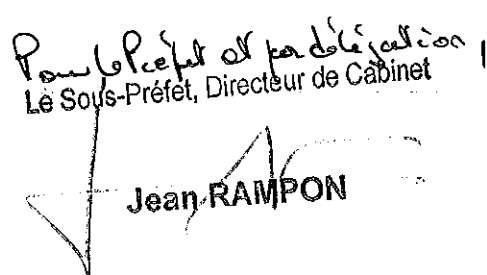 Pour le Préfet et par délégation,
Le Sous-Préfet, Directeur de Cabinet
Jean RAMPON